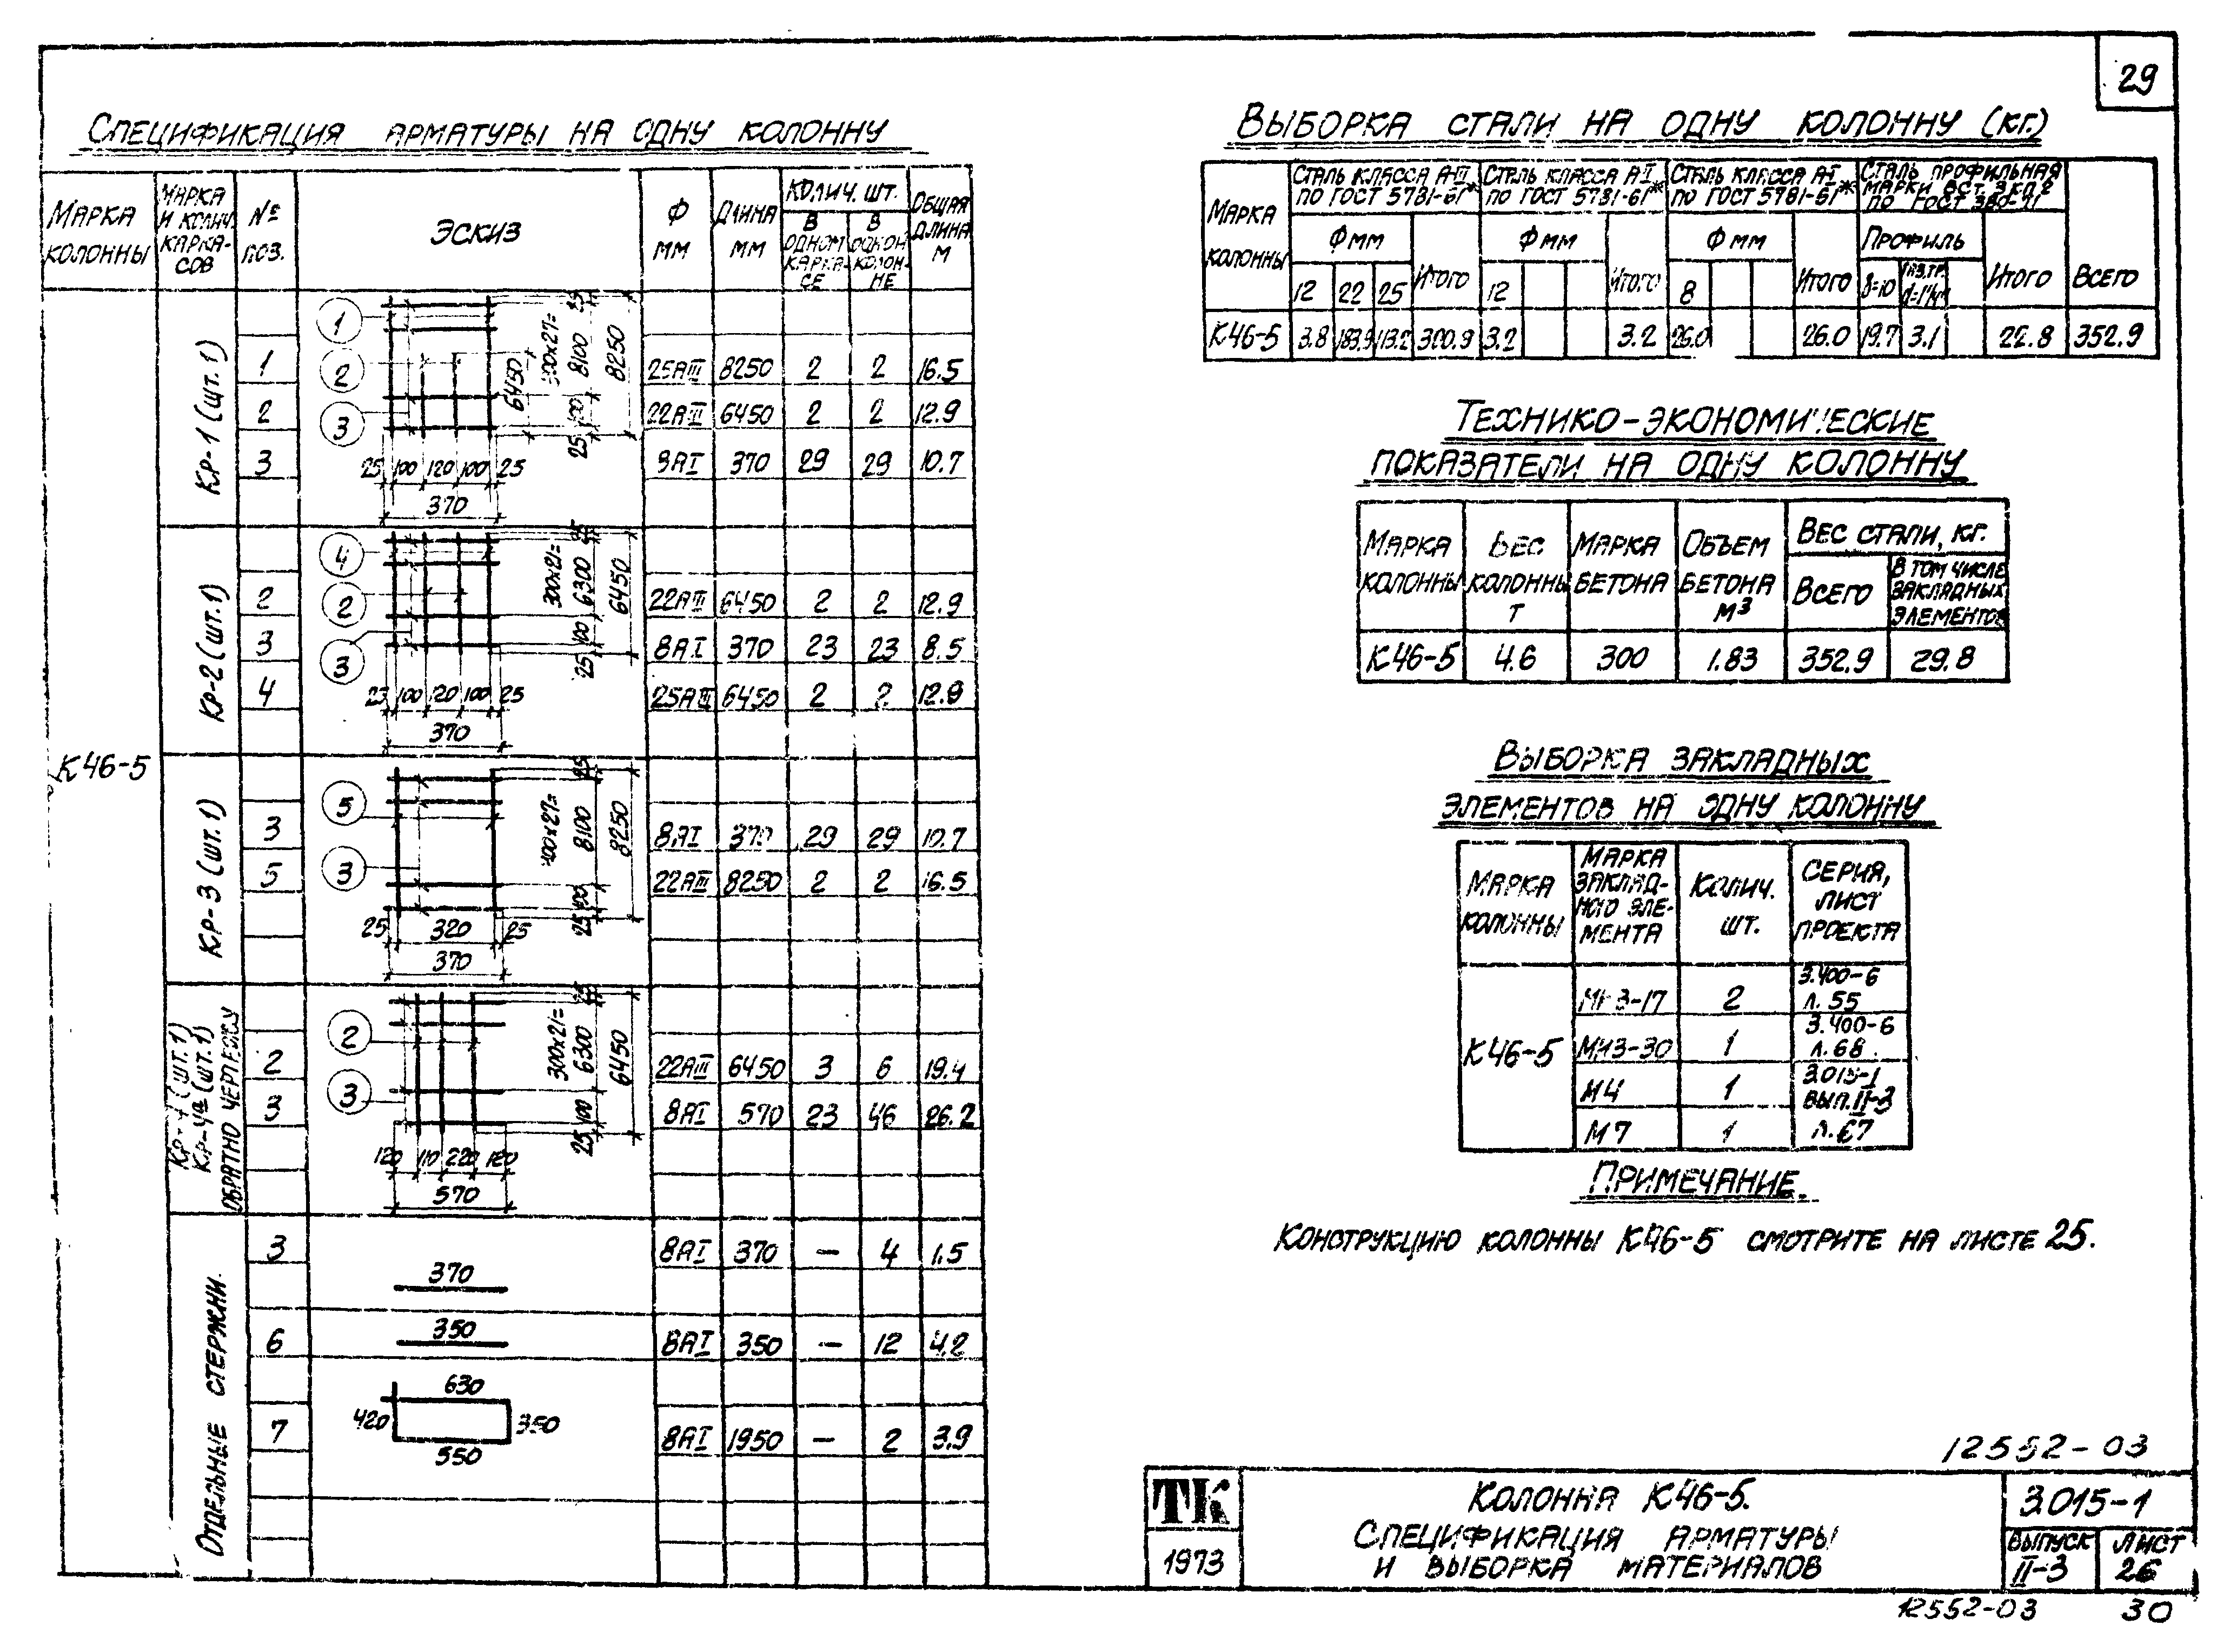 29
Спецификация арматуры на одну колонну
Марка колонны
Марка и колич. каркасов
№ поз.
Эскиз
Ф мм
Длина мм
Колич. шт.
в одном каркасе
в одной колонне
Общая длина м
К46-5
Кр-1 (шт. 1)
1 25АIII 8250 2 2 16.5
2 22АIII 6450 2 2 12.9
3 8АI 370 29 29 10.7
1 2 3
25 100 120 100 25
370
25 100 6450 8100 8250 25
Кр-2 (шт. 1)
2 22АIII 6450 2 2 12.9
3 8АI 370 23 23 8.5
4 25АIII 6450 2 2 12.9
4 2 3
25 100 120 100 25
370
25 100 300х21= 6300 6450 25
Кр-3 (шт. 1)
3 8АI 370 29 29 10.7
5 22АIII 8250 2 2 16.5
5 3
25 320 25
370
25 100 8100 8250 25
Кр-4 (шт. 1)
Кр-4а (шт. 1)
обратно чертежу
2 22АIII 6450 3 6 19.4
3 8АI 570 23 46 26.2
2 3
120 110 220 120
570
25 100 300х21= 6300 6450 25
Отдельные стержни.
3 370 8АI 370 — 4 1.5
6 350 8АI 350 — 12 4.2
7 630 420 350 550 8АI 1950 — 2 3.9
Выборка стали на одну колонну (кг.)
Марка колонны
Сталь класса А-III по ГОСТ 5781-61*
Сталь класса А-II по ГОСТ 5781-61*
Сталь класса А-I по ГОСТ 5781-61*
Сталь профильная марки ВСт. 3 кп 2 по ГОСТ 380-71
Фмм Фмм Фмм Профиль
12 22 25 Итого 12 Итого 8 Итого δ=10 Газ.тр. Итого Всего
К46-5 3.8 183.9 113.2 300.9 3.2 3.2 26.0 26.0 19.7 3.1 22.8 352.9
Технико-экономические
показатели на одну колонну
Марка колонны
Вес колонны т
Марка бетона
Объем бетона м3
Вес стали, кг.
Всего
в том числе закладных элементов
К46-5 4.6 300 1.83 352.9 29.8
Выборка закладных
элементов на одну колонну
Марка колонны
Марка закладного элемента
Колич. шт.
Серия, лист проекта
К46-5
МН3-17 2 3.400-6 л. 55
МН3-30 1 3.400-6 л. 68
М4 1 3.015-1 вып. II-3
М7 1 л. 67
Примечание.
Конструкцию колонны К46-5 смотрите на листе 25.
12552-03
ТК
1973
Колонна К46-5.
Спецификация арматуры
и выборка материалов
3.015-1
Выпуск II-3
Лист 26
12552-03 30